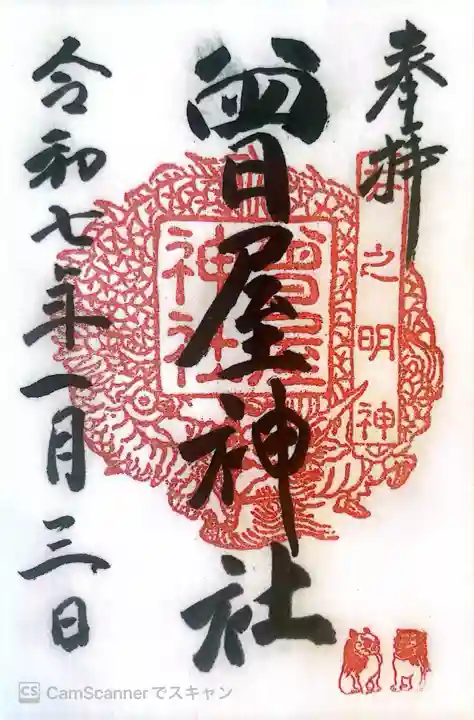 奉拝
之明神
曾屋神社
曾屋神社
令和七年一月三日
CS CamScannerでスキャン